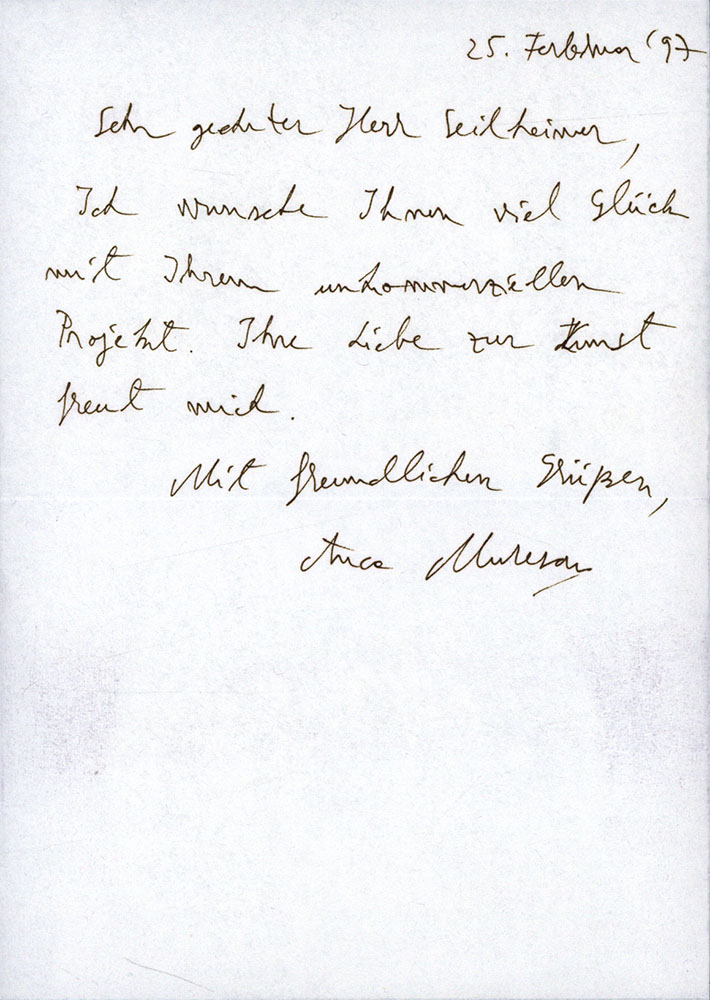 25. Februar '97
Sehr geehrter Herr Seilheimer,
Ich wunsche Ihnen viel Glück
mit Ihrem unkommerziellen
Projekt. Ihre Liebe zur Kunst
freut mich.
Mit freundlichen Grüßen,
Anca Muresan